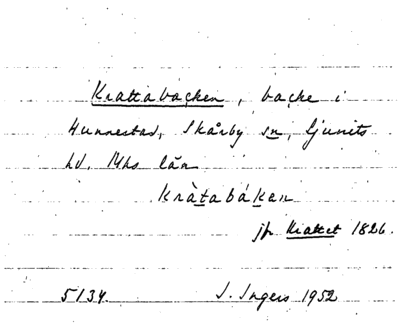 Krattabacken, backe i
Hunnestad, Skårby sn, Ljunits
hd. Mhs län
kràtabáken
jfr Krattet 1826.
5134. I. Ingers 1952